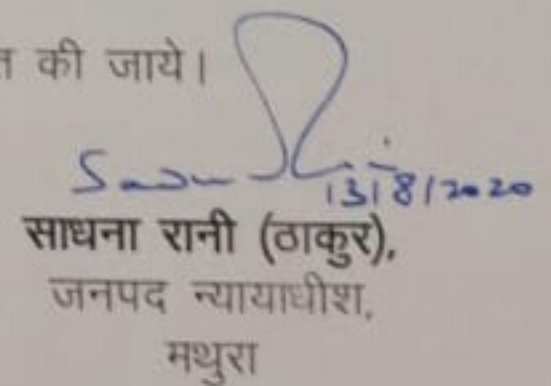 की जाये।
13/8/2020
साधना रानी (ठाकुर),
जनपद न्यायाधीश,
मथुरा